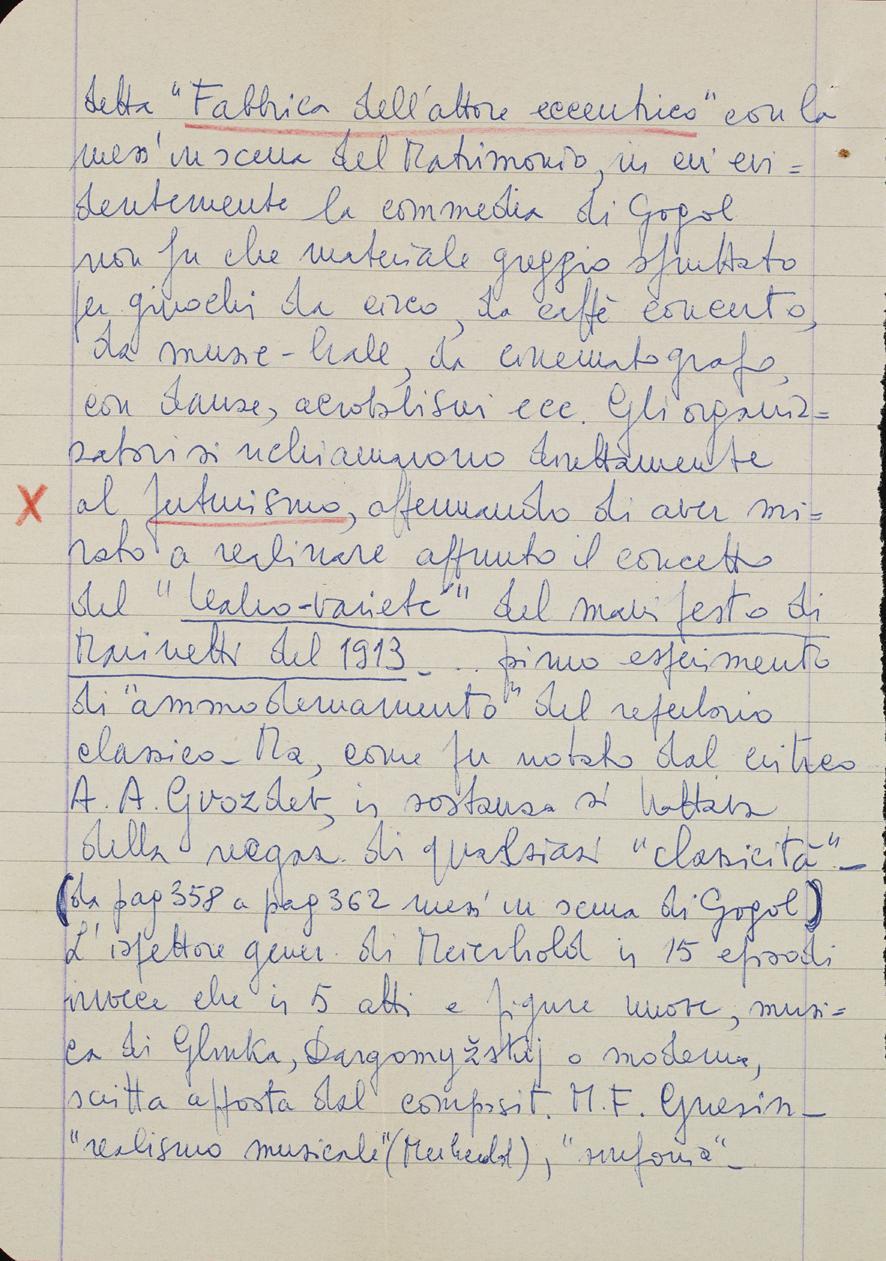 detta "Fabbrica dell'attore eccentrico" con la
mess' in scena del Matrimonio, in cui evi=
dentemente la commedia di Gogol
non fu che materiale greggio sfruttato
per giuochi da circo, da caffè concerto,
da music-hale, da cinematografo,
con danze, acrobatismi ecc. Gli organiz=
zatori si richiamarono direttamente
X al futurismo, affermando di aver mi=
rato a realizzare appunto il concetto
del "teatro-varietà" del manifesto di
Marinetti del 1913_ . . primo esperimento
di "ammodernamento" del repertorio
classico_ Ma, come fu notato dal critico
A. A. Gvozdev, in sostanza si trattava
della negaz. di qualsiasi "classicità"_
(da pag 358 a pag 362 mess' in scena di Gogol)
L'ispettore gener. di Meierhold in 15 episodi
invece che in 5 atti e figure nuove, musi=
ca di Glinka, Dargomyžskij o moderna,
scritta apposta dal composit. M. F. Gnesin_
"realismo musicale" (Meierhold), "sinfonia"_